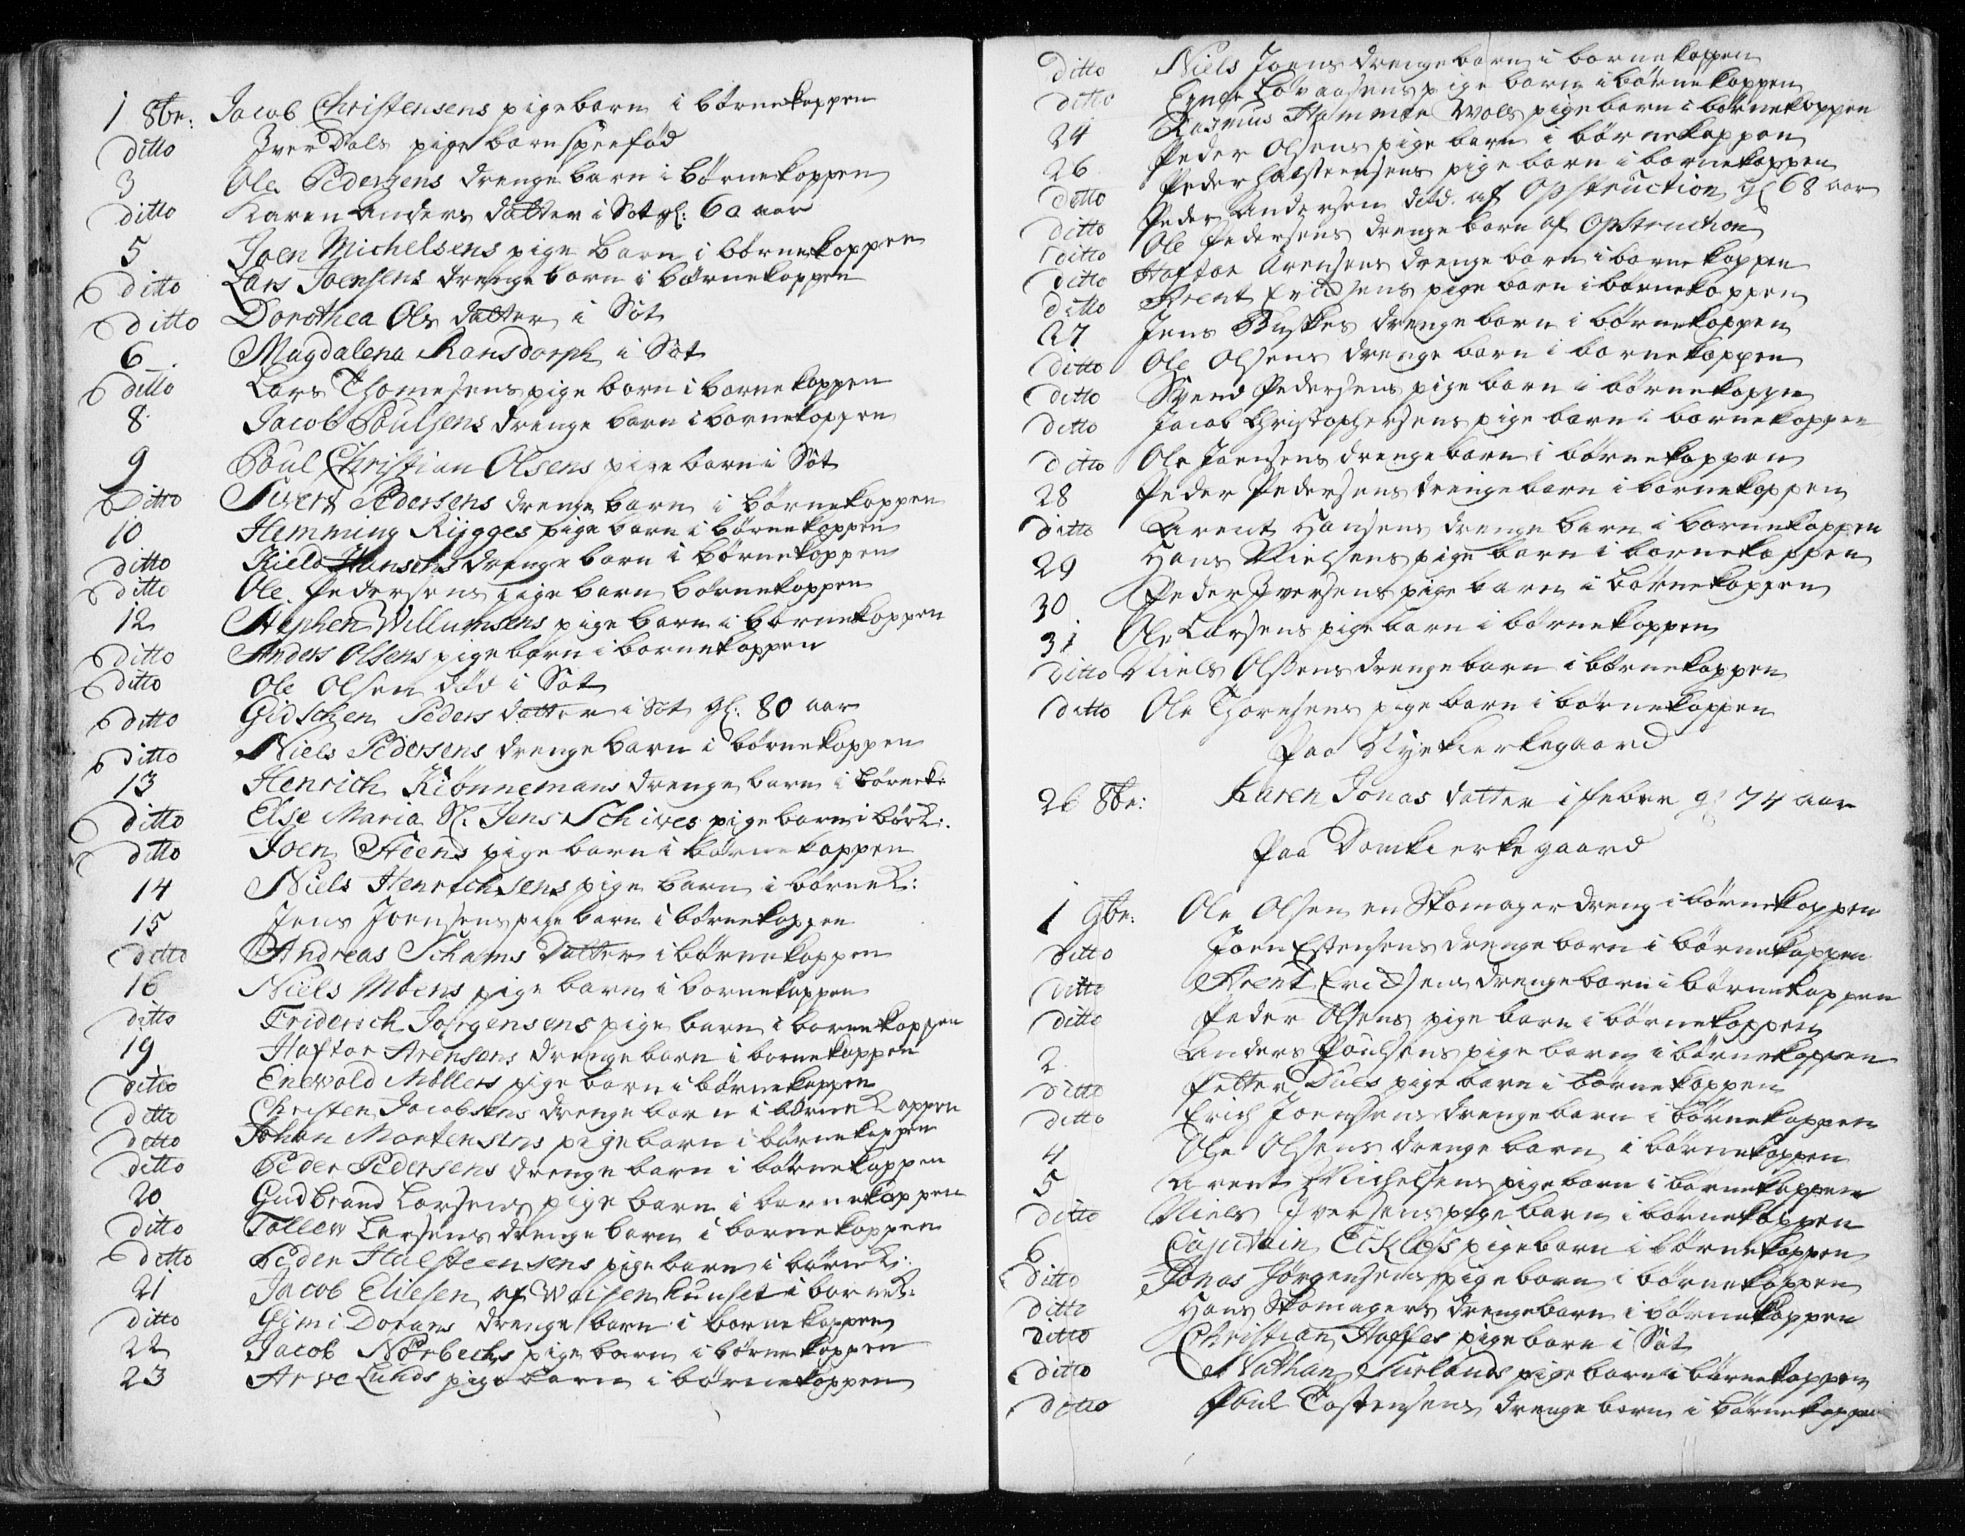 1 8br: Jacob Christensens pigebarn i børnekoppen
ditto Iver Dals pigebarn spæfød
3 Ole Pedersens drengebarn i børnekoppen
ditto Karen Anders datter i Sot gl: 60 aar
5 Joen Michelsens pige barn i børnekoppen
ditto Lars Joensens drenge barn i børnekoppen
ditto Dorothea Ols datter i Sot
6 Magdalena Ransdorph i Sot
ditto Lars Thomesens pige barn i børnekoppen
8 Jacob Poulsens drenge barn i børnekoppen
9 Poul Christian Olsens pigebarn i Sot
Ditto Sivert Pedersens drenge barn i børnekoppen
10 Hemming Rijgges pige barn i børnekoppen
ditto Kield Hansens drengebarn i børnekoppen
ditto Ole Pedersens pige barn børnekoppen
12 Stephen Willumsens pige barn i børnekoppen
ditto Anders Olsens pigebørn i børnekoppen
ditto Ole Olsen død i Sot
ditto Gidschen Peders datter i Sot gl: 80 aar
ditto Niels Pedersens drenge barn i børnekoppen
13 Henrich Kiønnemans drenge barn i børnek:
ditto Else Maria Sl. Jens Schives pigebarn i børk:
ditto Joen Steens pige barn i børnekoppen
14 Niels Henrichsens pige barn i børnek:
15 Jens Joensens pige barn i børnekoppen
ditto Andreas Schams datter i børnekoppen
16 Niels Moens pige barn i børnekoppen
ditto Friderich Jørgensens pige barn i børnekoppen
19 Haftor Arensens drengebarn i børnekoppen
ditto Enevold Møllers pige barn i børnekoppen
ditto Christen Jacobsens drenge barn i børnekoppen
ditto Johan Mortensens pigebarn i børnekoppen
ditto Peder Pedersens drenge barn i børnekoppen
20 Gudbrand Larsens pige barn i børnekoppen
ditto Tollew Larsens drenge barn i børnekoppen
ditto Peder Halsteensens pige barn i børnek:
21 Jacob Eliesen af Waisenhuuset i børnek:
ditto Gimi Dorans drenge barn i børnekoppen
22 Jacob Nørbechs pige barn i børnekoppen
23 Arve Lunds pige barn i børnekoppen
ditto Niels Joens drengebarn i børnekoppen
ditto Løvaasens pige barn i børnekoppen
24 Rasmus Hammer Wols pigebarn i børnekoppen
26 Peder Olsens pige barn i børnekoppen
ditto Peder Halsteensens pige barn i børnekoppen
ditto Peder Andersen død af Opstruction gl 68 aar
ditto Ole Pedersens drenge barn af Opstruction
ditto Haftor Arensens drenge barn i børnekoppen
ditto Arent Erichsens pige barn i børnekoppen
27 Jens Buskes drenge barn i børnekoppen
ditto Ole Olsens drenge barn i børnekoppen
ditto Svend Pedersens pige barn i børnekoppen
ditto Jacob Christophersens pige barn i børnekoppen
ditto Ole Joensens drengebarn i børnekoppen
28 Peder Pedersens drengebarn i børnekoppen
ditto Arent Hansens drenge barn i børnekoppen
29 Hans Nielsens pige barn i børnekoppen
30 Peder Iversens pige barn i børnekoppen
31 Ole Larsens pigebarn i børnekoppen
ditto Niels Olsens drengebarn i børnekoppen
ditto Ole Thoresens pige barn i børnekoppen
Paa Nyekierkegaard
26 8br: Karen Jonas datter i feber gl 74 aar
Paa Domkierkegaard
1 9br: Ole Olsen en Skomagerdreng i børnekoppen
ditto Joen Estensens drenge barn i børnekoppen
ditto Arent Erichsens drengebarn i børnekoppen
ditto Peder Olsens pige barn i børnekoppen
2 Anders Poulsens pige barn i børnekoppen
ditto Petter Dues pige barn i børnekoppen
ditto Erich Joenssens drengebarn i børnekoppen
4 Ole Olsens drenge barn i børnekoppen
5 Arent Michelsens pige barn i børnekoppen
ditto Niels Iversens pigebarn i børnekoppen
6 Capitain Ecklefs pigebarn i børnekoppen
ditto Jonas Jørgensens pige barn i børnekoppen
ditto Hans Skomagers drengebarn i børnekoppen
ditto Christian Hoffes pigebarn i Sot
ditto Nathan Surlands pige barn i børnekoppen
ditto Poul Tostensens drenge barn i børnekoppen